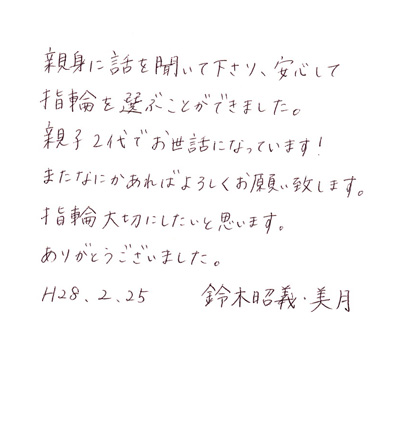 親身に話を聞いて下さり、安心して
指輪を選ぶことができました。
親子2代でお世話になっています!
またなにかあればよろしくお願い致します。
指輪大切にしたいと思います。
ありがとうございました。
H28.2.25 鈴木昭義・美月